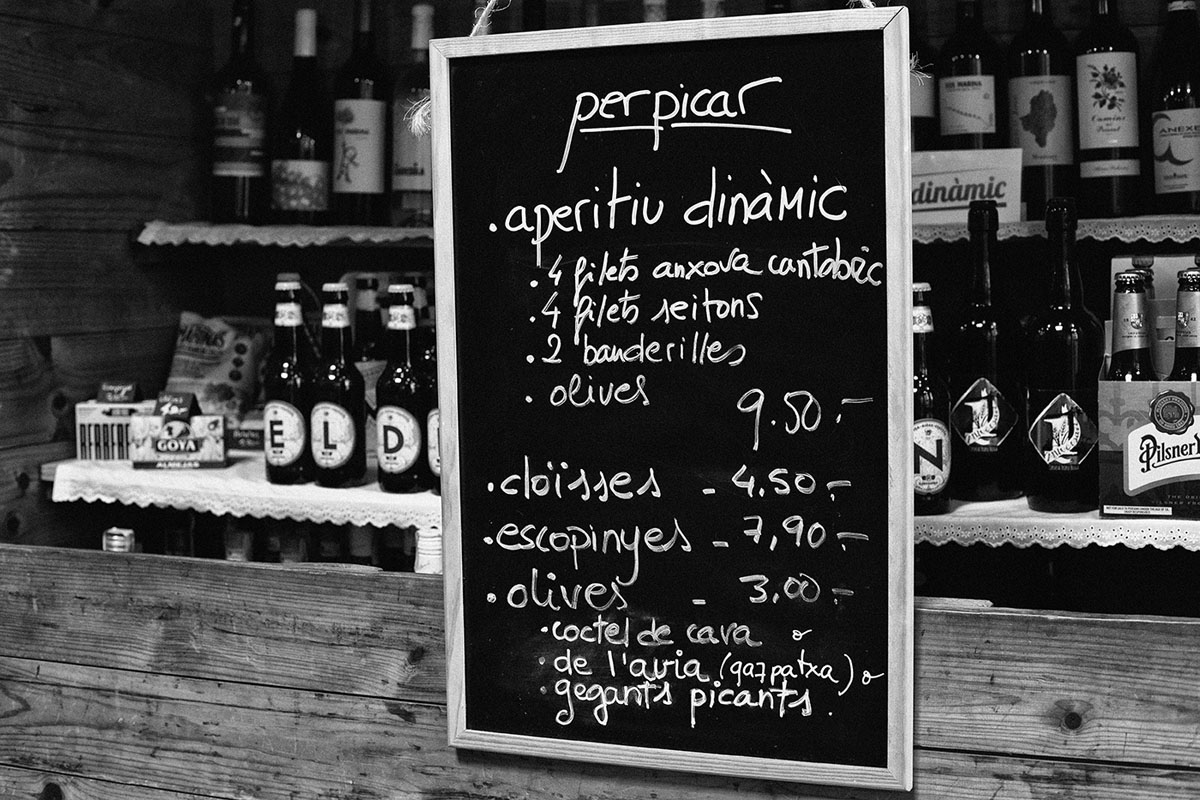 perpicar
.aperitiu dinàmic
.4 filets anxova cantabric
.4 filets seitons
.2 banderilles
.olives
9.50.-
.cloïsses - 4.50.-
.escopinyes - 7,90.-
.olives - 3,00.-
.coctel de cava o
.de l'avia (gazpatxa) o
.gegants picants.
dinàmic
ANEXO
BERBERE
GOYA
ALMEJAS
E L D
N
Pilsner